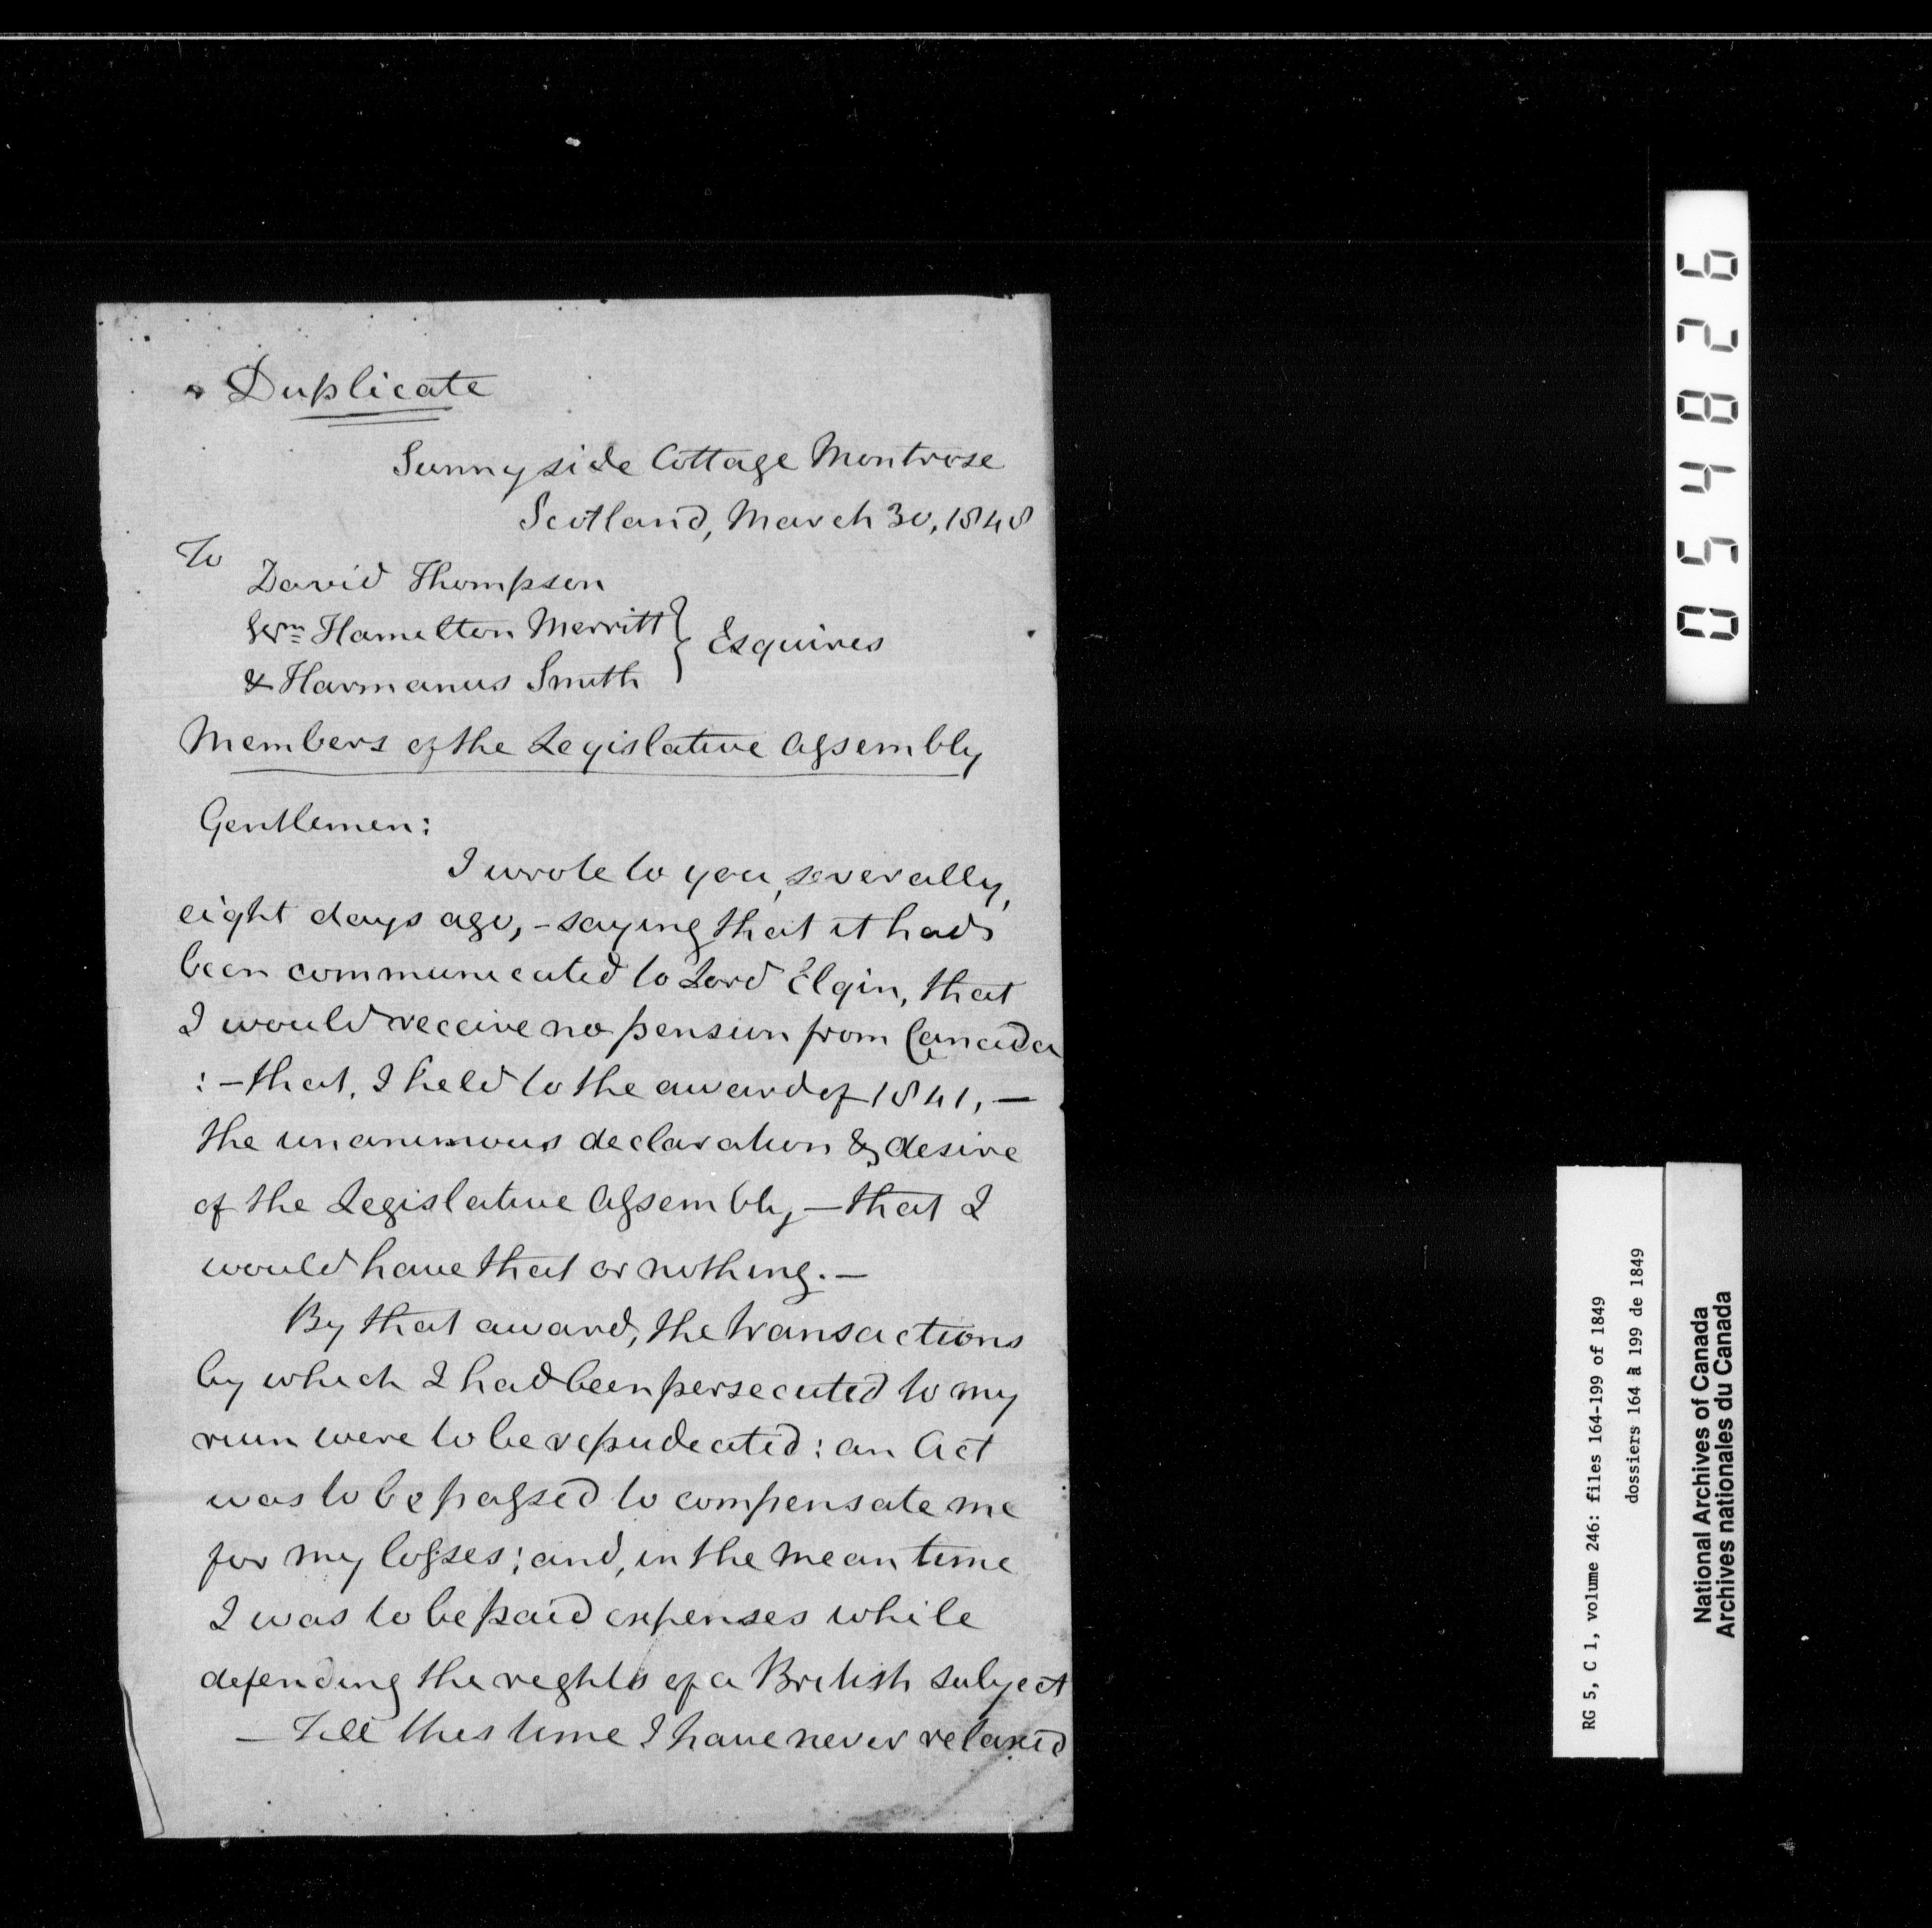 Duplicate
Sunnyside Cottage Montrose
Scotland, March 30, 1848
To
David Thompson
Wm Hamelton Merritt } Esquires
& Harmanus Smith
Members of the Legislative Assembly
Gentlemen:
I wrote to you, severally,
eight days ago, – saying that it had
been communicated to Lord Elgin, that
I would receive no pension from Canada
: – that, I held to the award of 1841, —
the unanimous declaration & desire
of the Legislative Assembly, – that I
would have that or nothing. –
By that award, the transactions
by which I had been persecuted to my
ruin were to be repudiated: an Act
was to be passed to compensate me
for my losses; and, in the mean time
I was to be paid expenses while
defending the rights of a British subject
– Till this time I have never relaxed
054826
RG 5, C 1, volume 246: files 164-199 of 1849
dossiers 164 à 199 de 1849
National Archives of Canada
Archives nationales du Canada